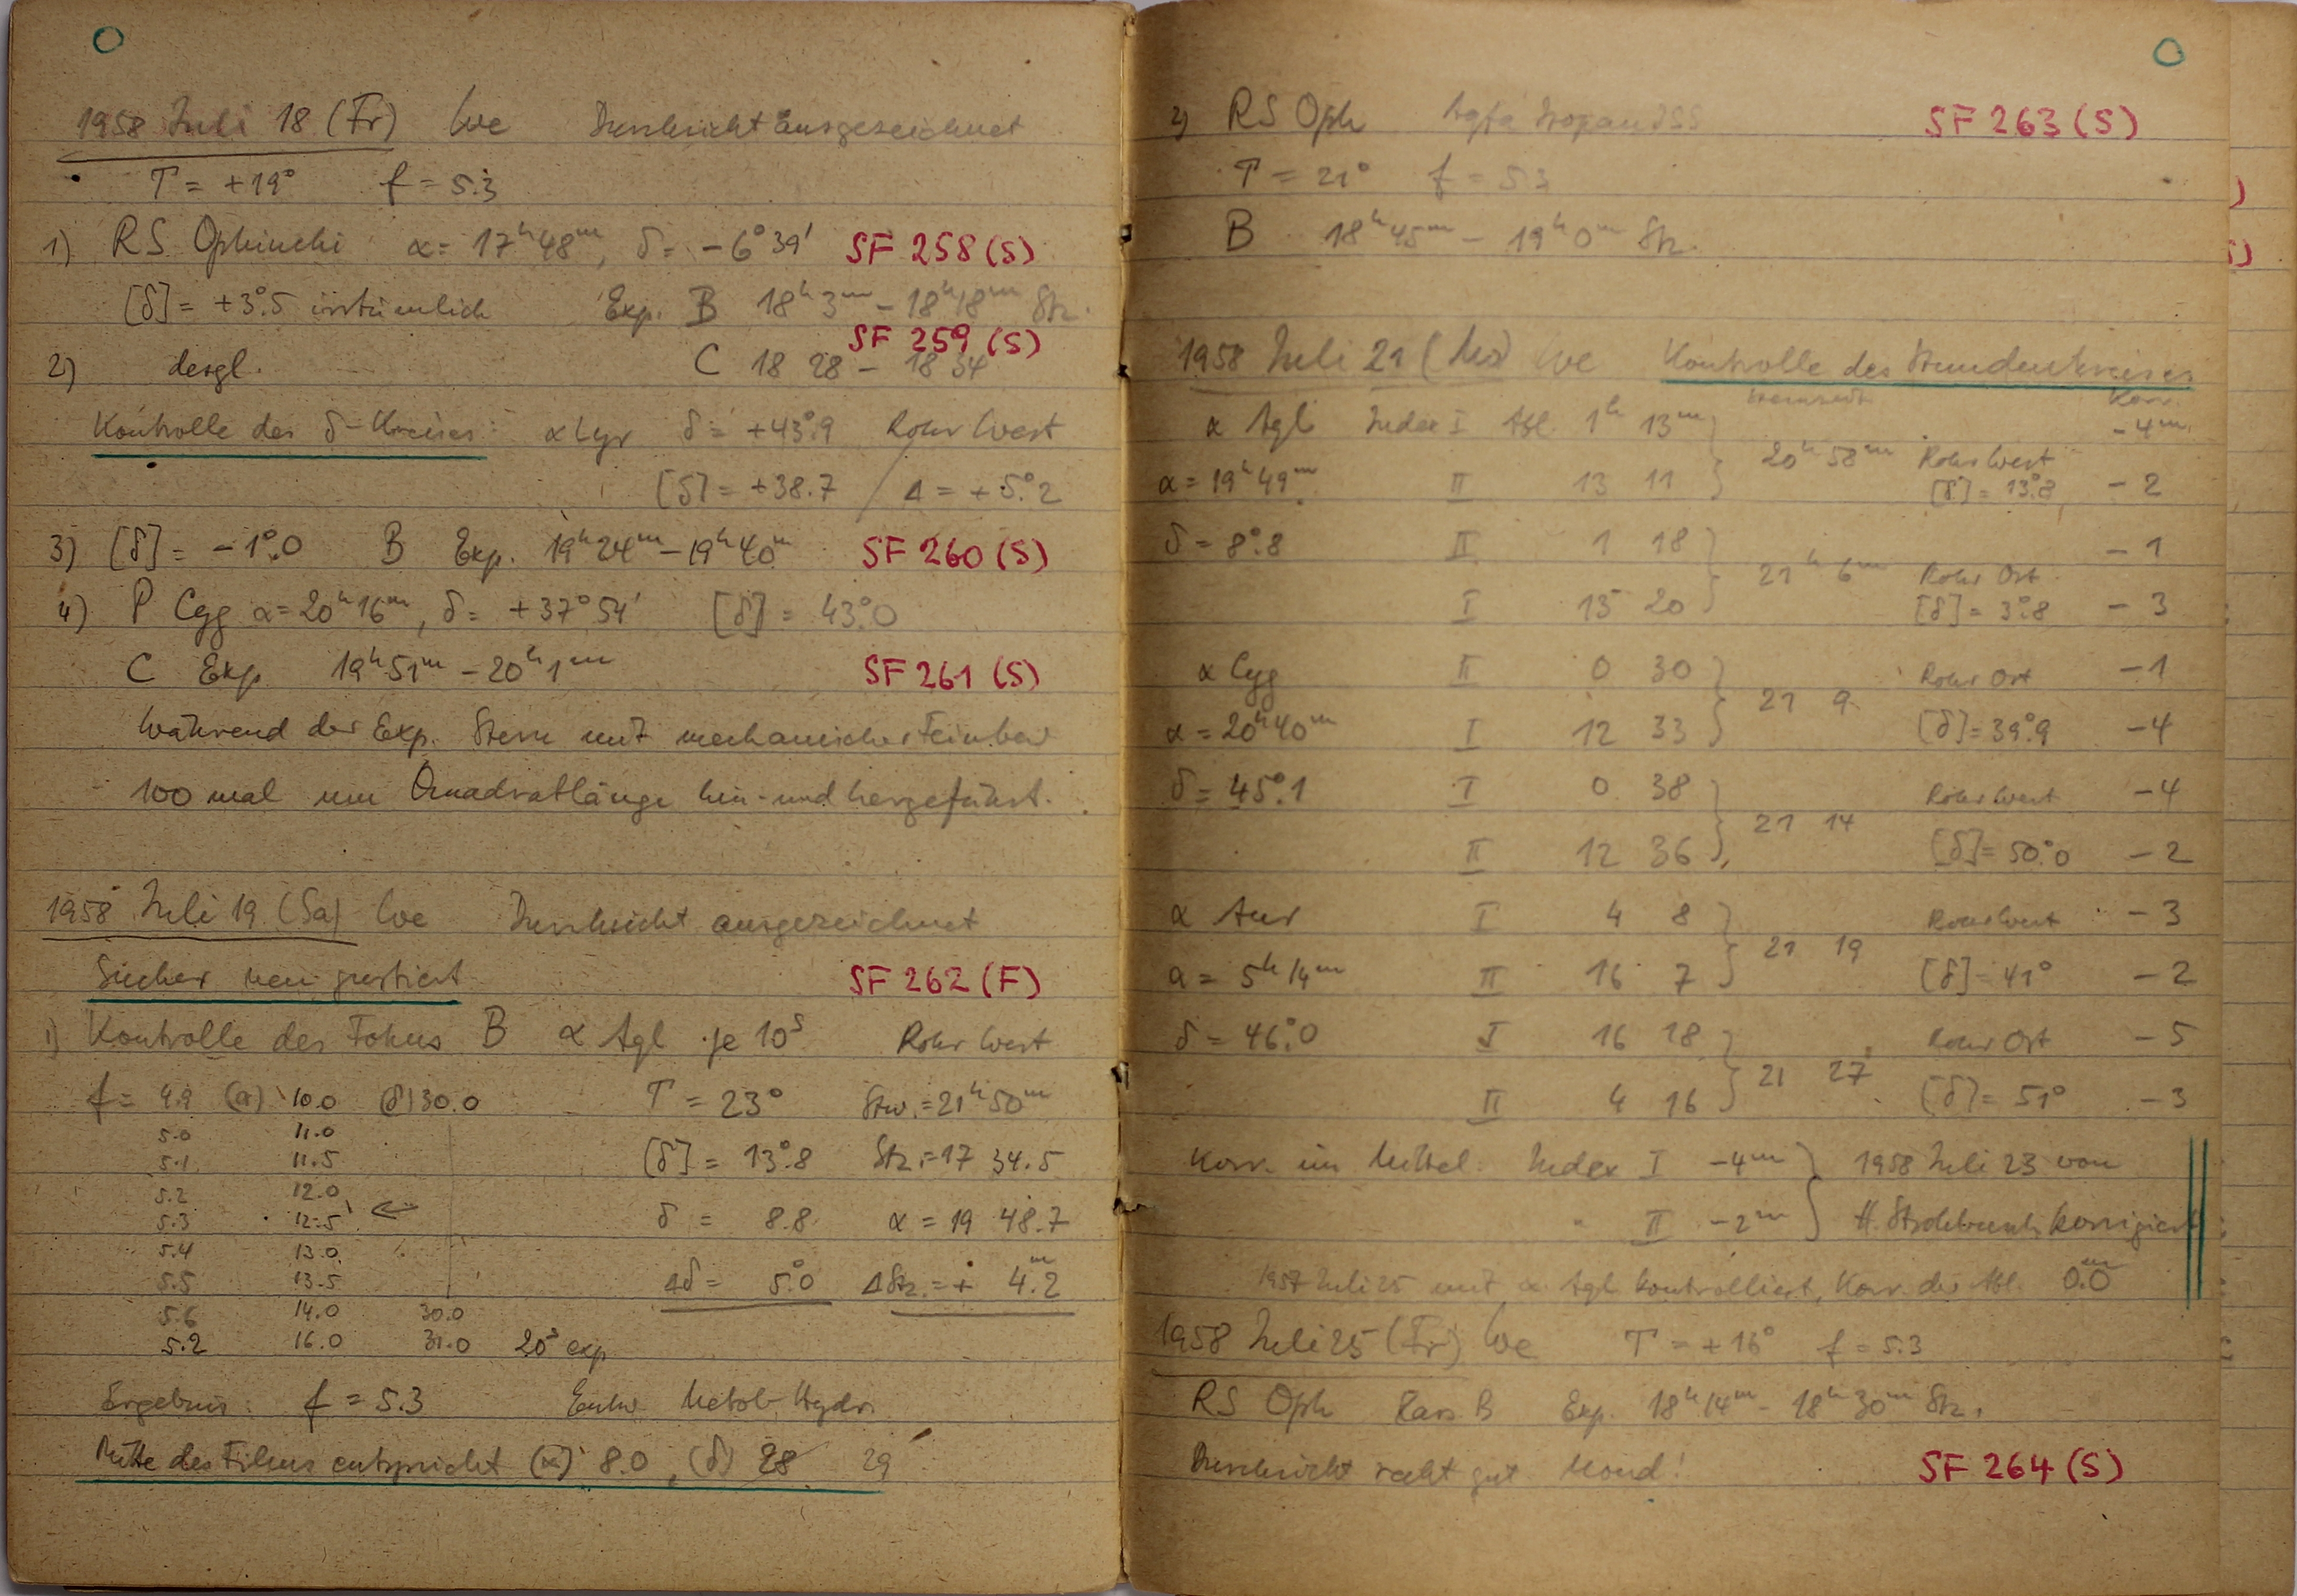 1958 Juli 18 (Fr) We Durchsicht ausgezeichnet
T = +19° f = 5.3
1) RS Ophiuchi α = 17ʰ48ᵐ, δ = −6°39' SF 258 (S)
[δ] = +3°.5 irrtümlich Exp. B 18ʰ3ᵐ − 18ʰ18ᵐ Stz.
SF 259 (S)
2) desgl. C 18 28 − 18 34
Kontrolle des δ-Kreises: α Lyr δ = +43°.9 Rohr West
[δ] = +38.7 / Δ = +5°.2
3) [δ] = −1°.0 B Exp. 19ʰ24ᵐ − 19ʰ40ᵐ SF 260 (S)
4) P Cyg α = 20ʰ16ᵐ, δ = +37°54' [δ] = 43°.0
C Exp. 19ʰ51ᵐ − 20ʰ1ᵐ SF 261 (S)
Während der Exp. Stern mit mechanischer Feinbew
100 mal um Quadratlänge hin- und hergeführt.
1958 Juli 19 (Sa) We Durchsicht ausgezeichnet
Sucher neu justiert SF 262 (F)
1) Kontrolle des Fokus B α Agl je 10ˢ Rohr West
f = 4.9 (α) 10.0 (δ) 30.0 T = 23° Stw. = 21ʰ50ᵐ
5.0 11.0
5.1 11.5 [δ] = 13°.8 Stz. = 17 34.5
5.2 12.0
5.3 12.5 ← δ = 8.8 α = 19 48.7
5.4 13.0
5.5 13.5 Δδ = 5°.0 ΔStz. = + 4ᵐ.2
5.6 14.0 30.0
5.2 16.0 31.0 20ˢ exp
Ergebnis: f = 5.3 Entw. Metol-Hydr.
Mitte des Filmes entspricht (α) 8.0, (δ) 28 29
2) RS Oph Agfa Isopan ISS SF 263 (S)
T = 21° f = 5.3
B 18ʰ45ᵐ − 19ʰ0ᵐ Stz.
1958 Juli 21 (Mo) We Kontrolle des Stundenkreises
Sternzeit Korr.
α Agl Index I Abl. 1ʰ 13ᵐ } −4ᵐ
α = 19ʰ49ᵐ II 13 11 } 20ʰ58ᵐ Rohr West [δ] = 13°.8 −2
δ = 8°.8 II 1 18 } −1
I 13 20 } 21ʰ6ᵐ Rohr Ost [δ] = 3°.8 −3
α Cyg II 0 30 } Rohr Ost −1
α = 20ʰ40ᵐ I 12 33 } 21 9 [δ] = 39°.9 −4
δ = 45°.1 I 0 38 } Rohr West −4
II 12 36 } 21 14 [δ] = 50°.0 −2
α Aur I 4 8 } Rohr West −3
α = 5ʰ14ᵐ II 16 7 } 21 19 [δ] = 41° −2
δ = 46°.0 I 16 18 } Rohr Ost −5
II 4 16 } 21 27 [δ] = 51° −3
Korr. im Mittel Index I −4ᵐ } 1958 Juli 23 von
" II −2ᵐ } H. korrigiert
1957 Juli 25 mit α Agl kontrolliert, Korr. der Abl. 0ᵐ.0
1958 Juli 25 (Fr) We T = +16° f = 5.3
RS Oph B Exp. 18ʰ14ᵐ − 18ʰ30ᵐ Stz.
Durchsicht recht gut Mond! SF 264 (S)